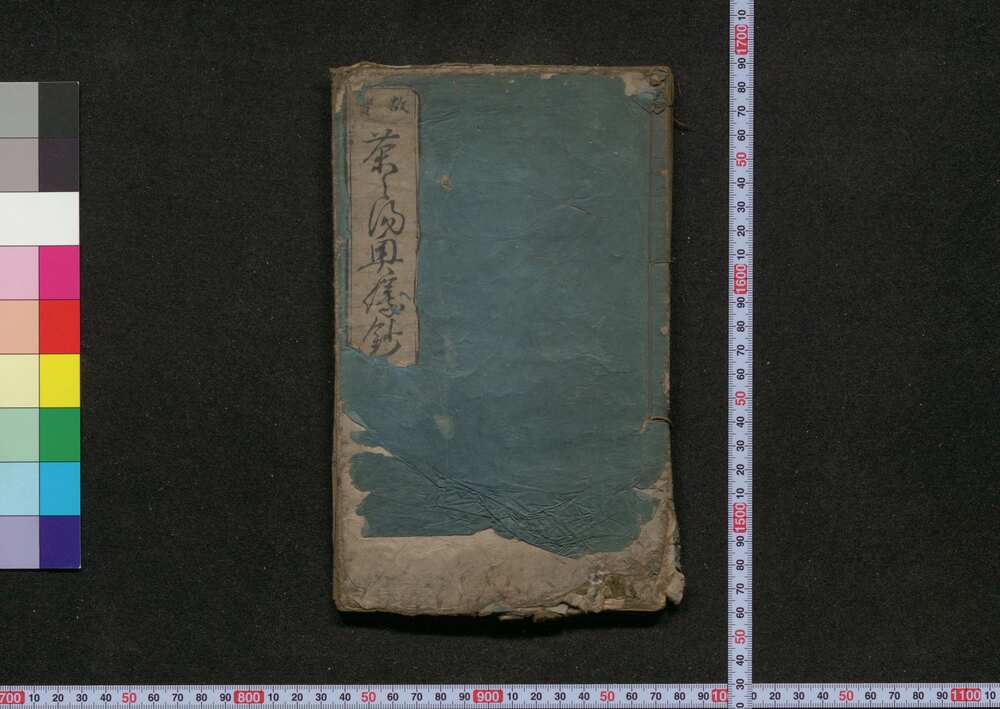 故
茶之湯奥儀鈔
10 1700 90 80 70 60 50 40 30 20 10 1600 90 80 70 60 50 40 30 20 10 1500 90 80 70 60 50 40 30
700 10 20 30 40 50 60 70 80 90 800 10 20 30 40 50 60 70 80 90 900 10 20 30 40 50 60 70 80 90 10 20 30 40 50 60 70 80 90 1100 10